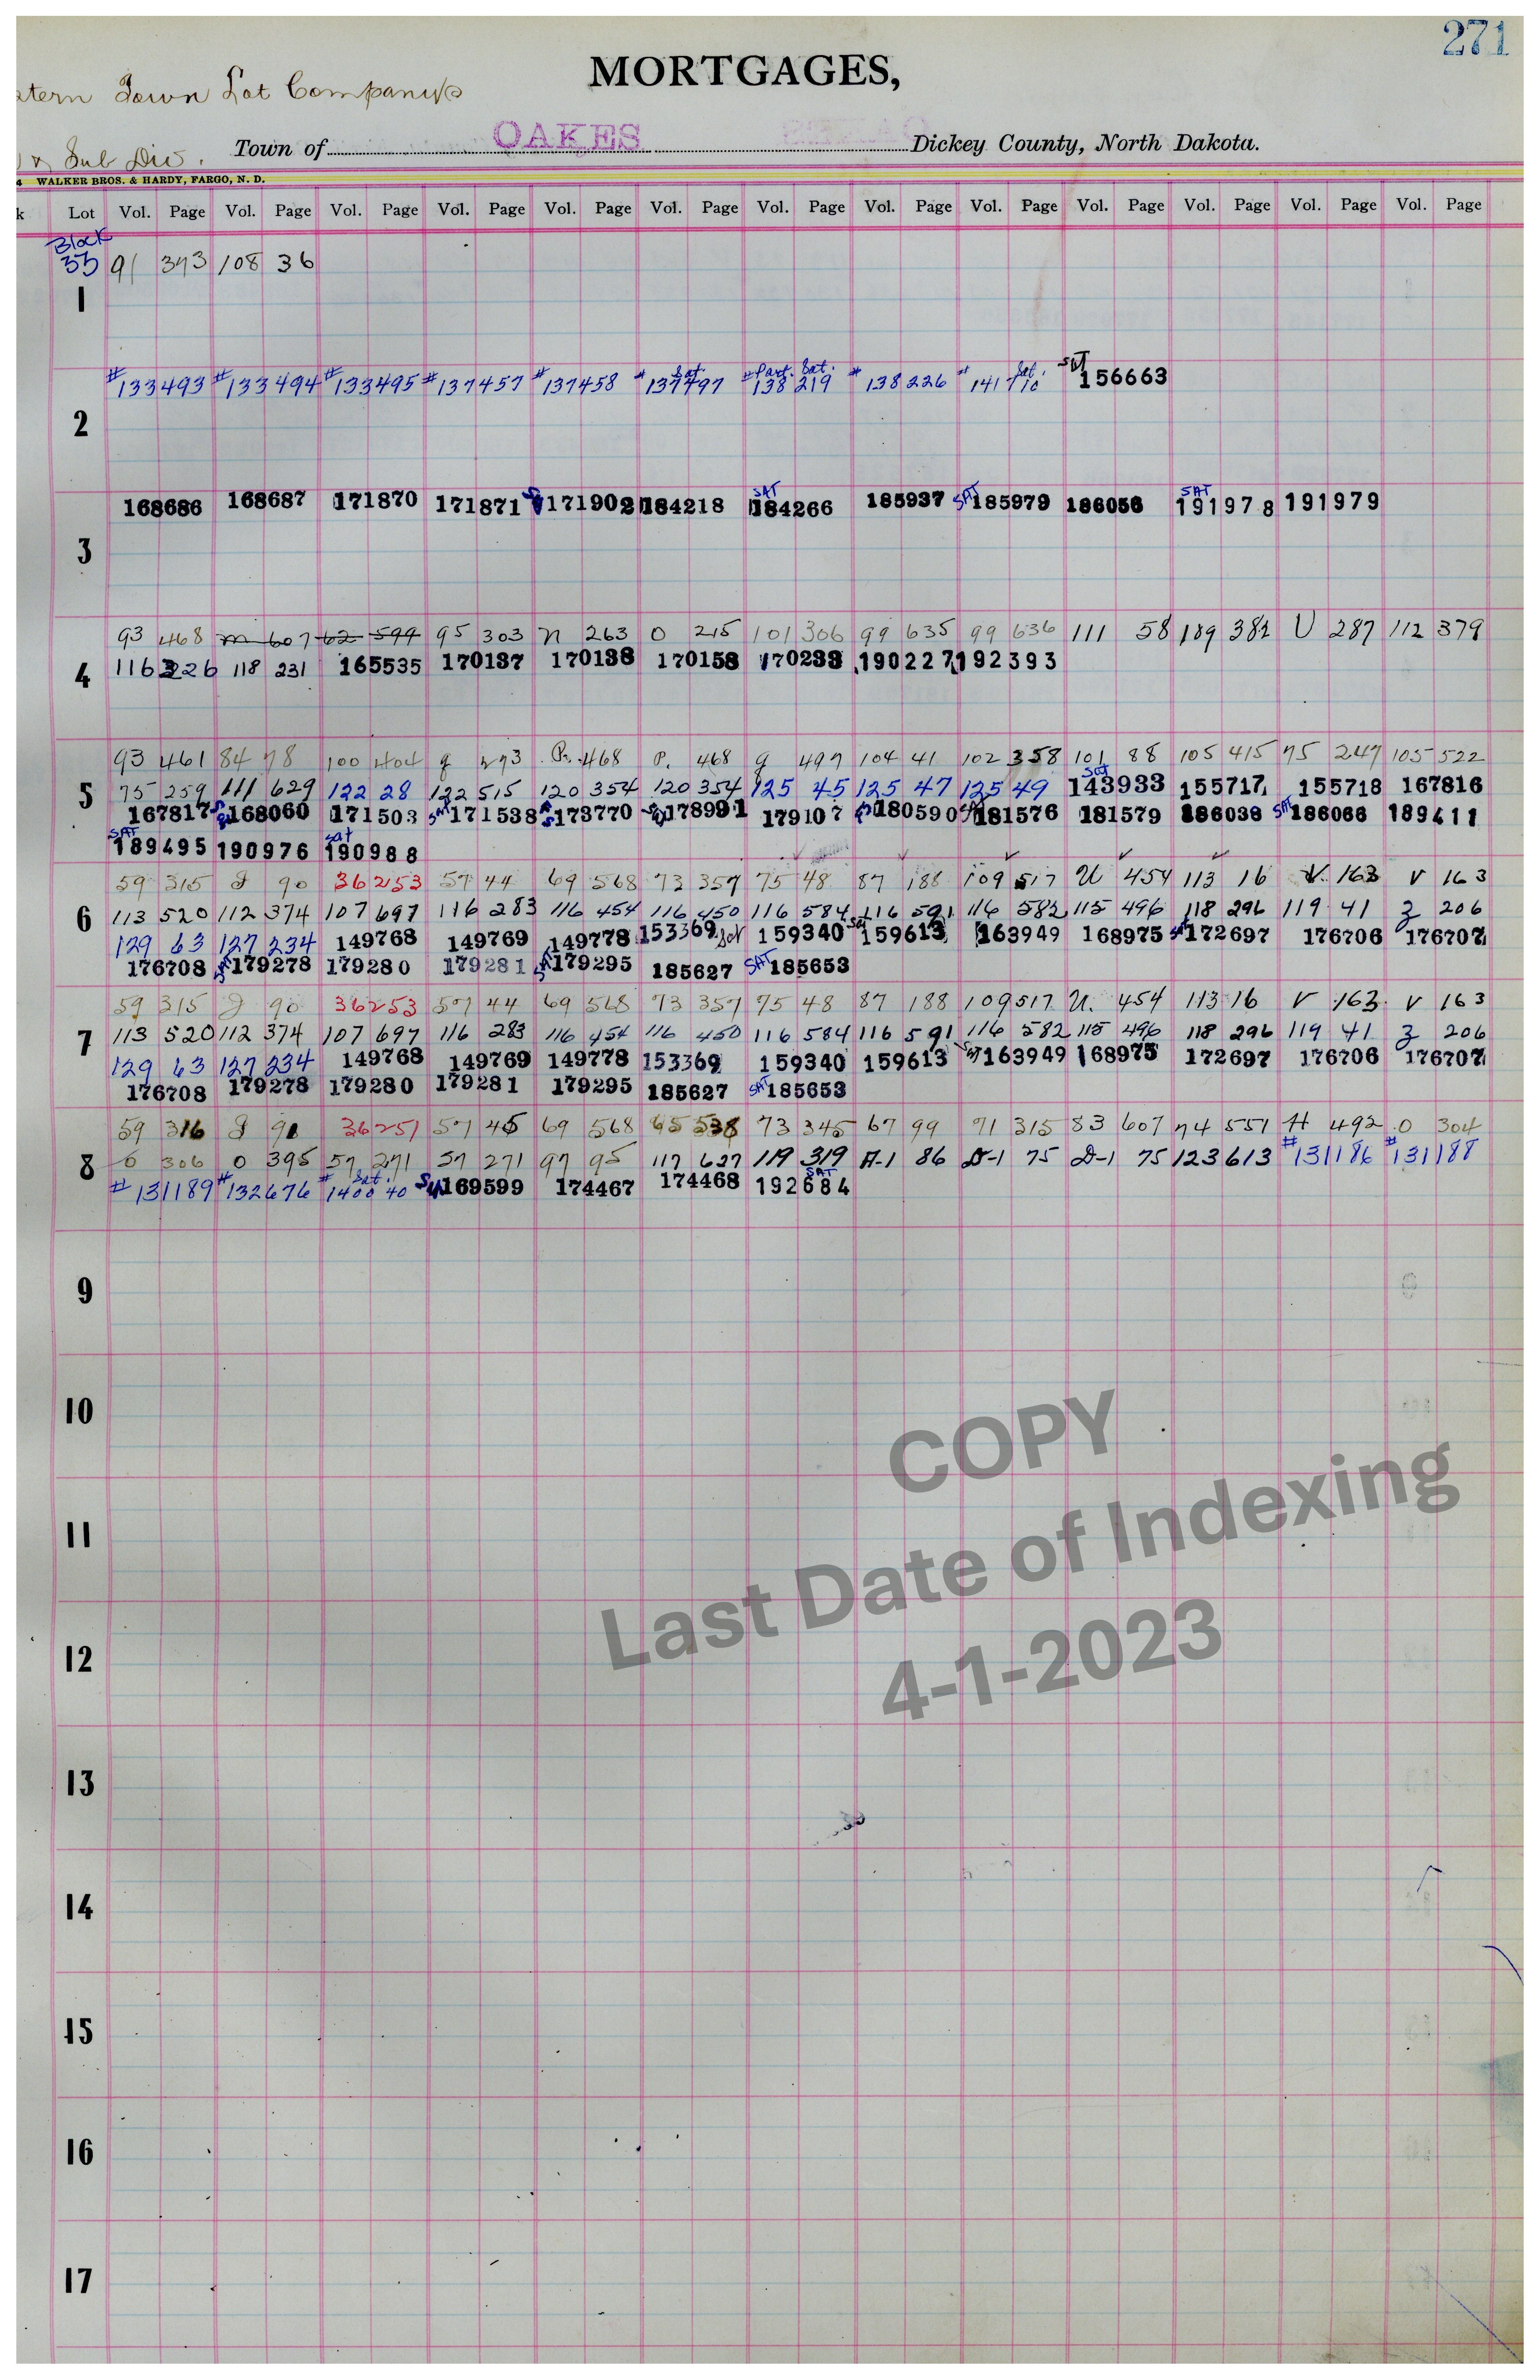 271
MORTGAGES,
Town Lot Company's
Sub Div.
Town of OAKES Dickey County, North Dakota.
WALKER BROS. & HARDY, FARGO, N. D.
Lot Vol. Page Vol. Page Vol. Page Vol. Page Vol. Page Vol. Page Vol. Page Vol. Page Vol. Page Vol. Page Vol. Page Vol. Page Vol. Page
Block
33 91 393 108 36
1
#133493 #133494 #133495 #137457 #137458 #137497 Sat. #138219 Part. Sat. #138226 #141710 Sat. SAT 156663
2
168686 168687 171870 171871 171902 184218 SAT 184266 185937 SAT 185979 186056 SAT 191978 191979
3
93 468 m 607 62 599 95 303 N 263 O 215 101 306 99 635 99 636 111 58 189 382 U 287 112 379
4 116 326 118 231 165535 170137 170138 170158 170233 190227 192393
93 461 84 78 100 404 g 273 P. 468 P. 468 g 497 104 41 102 358 101 88 105 415 75 247 105 522
5 75 259 111 629 122 28 122 515 120 354 120 354 125 45 125 47 125 49 Sat 143933 155717 155718 167816
167817 168060 171503 SAT 171538 173770 178991 179107 180590 SAT 181576 181579 186038 SAT 186066 189411
SAT 189495 190976 Sat 190988
59 315 J 90 36 253 57 44 69 568 73 357 75 48 87 188 109 517 U 454 113 16 V. 163 V 163
6 113 520 112 374 107 697 116 283 116 454 116 450 116 584 116 591 116 582 115 496 118 296 119 41 Z 206
129 63 127 234 149768 149769 149778 153369 Sat 159340 Sat 159613 163949 168975 SAT 172697 176706 176707
176708 SAT 179278 179280 179281 SAT 179295 185627 SAT 185653
59 315 J 90 36 253 57 44 69 568 73 357 75 48 87 188 109 517 U. 454 113 16 V 163 V 163
7 113 520 112 374 107 697 116 283 116 454 116 450 116 584 116 591 116 582 115 496 118 296 119 41 Z 206
129 63 127 234 149768 149769 149778 153369 159340 159613 SAT 163949 168975 172697 176706 176707
176708 179278 179280 179281 179295 185627 SAT 185653
59 316 J 91 36 251 57 45 69 568 65 538 73 345 67 99 71 315 83 607 74 551 H 492 O 304
8 O 306 O 395 57 271 57 271 97 95 117 627 119 319 A-1 86 D-1 75 D-1 75 123 613 #131186 #131188
#131189 #132676 #140040 Sat. SAT 169599 174467 174468 SAT 192684
9
10
11
12
13
14
15
16
17
COPY
Last Date of Indexing
4-1-2023